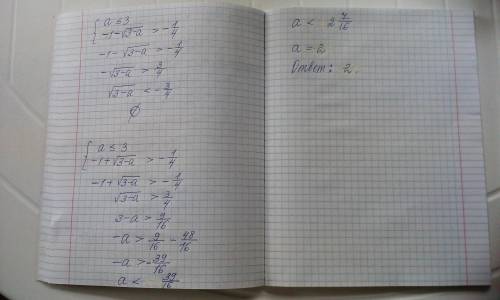 { a ≤ 3
{ -1-√(3-a) > -1/4
-1-√(3-a) > -1/4
-√(3-a) > 3/4
√(3-a) < -3/4
∅
{ a ≤ 3
{ -1+√(3-a) > -1/4
-1+√(3-a) > -1/4
√(3-a) > 3/4
3-a > 9/16
-a > 9/16 - 48/16
-a > -39/16
a < 39/16
a < 2 7/16
a = 2
Ответ: 2.